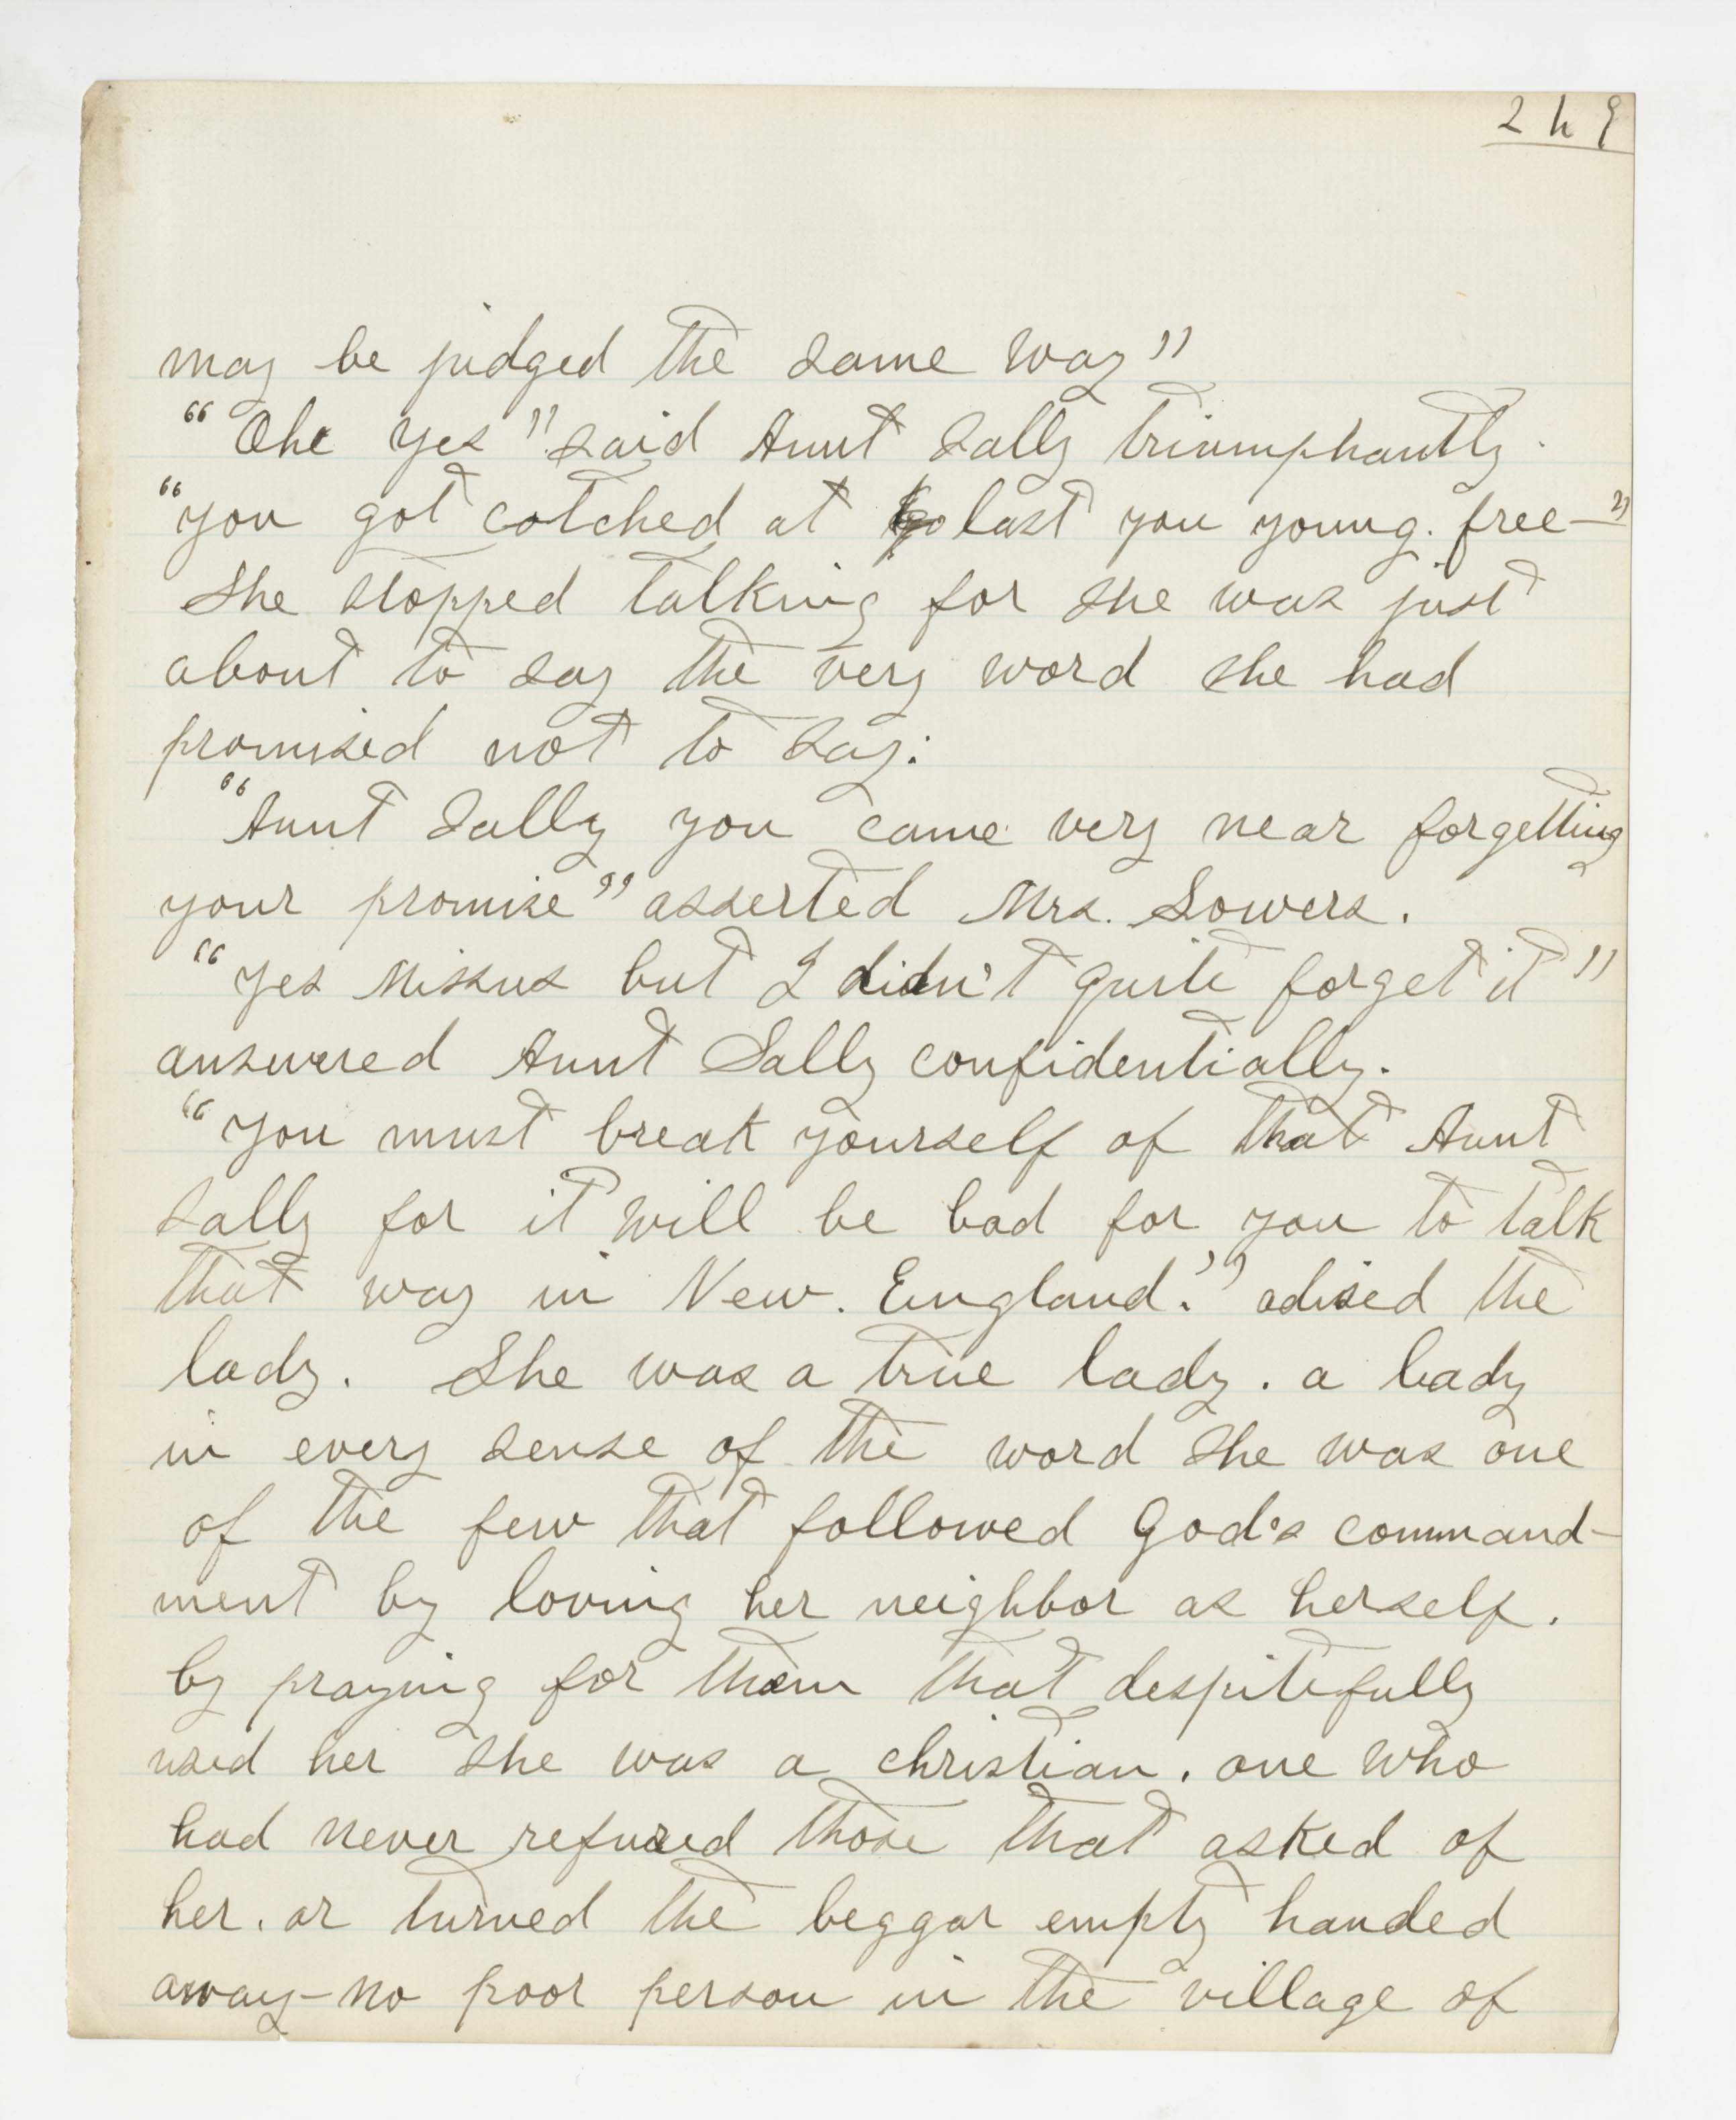 249
may be judged the same way"
"Ohe yes" said Aunt Sally triumphantly.
"you got cotched at last you young. free—"
She stopped talking for she was just
about to say the very word she had
promised not to say.
"Aunt Sally you came very near forgetting
your promise" asserted Mrs. Sowers.
"Yes Missus but I didn't quite forget it"
answered Aunt Sally confidentially.
"You must break yourself of that Aunt
Sally for it will be bad for you to talk
that way in New. England." adised the
lady. She was a true lady. a lady
in every sense of the word she was one
of the few that followed God's command-
ment by loving her neighbor as herself.
by praying for them that despitefully
used her she was a christian. one who
had never refused those that asked of
her. or turned the beggar empty handed
away—no poor person in the village of